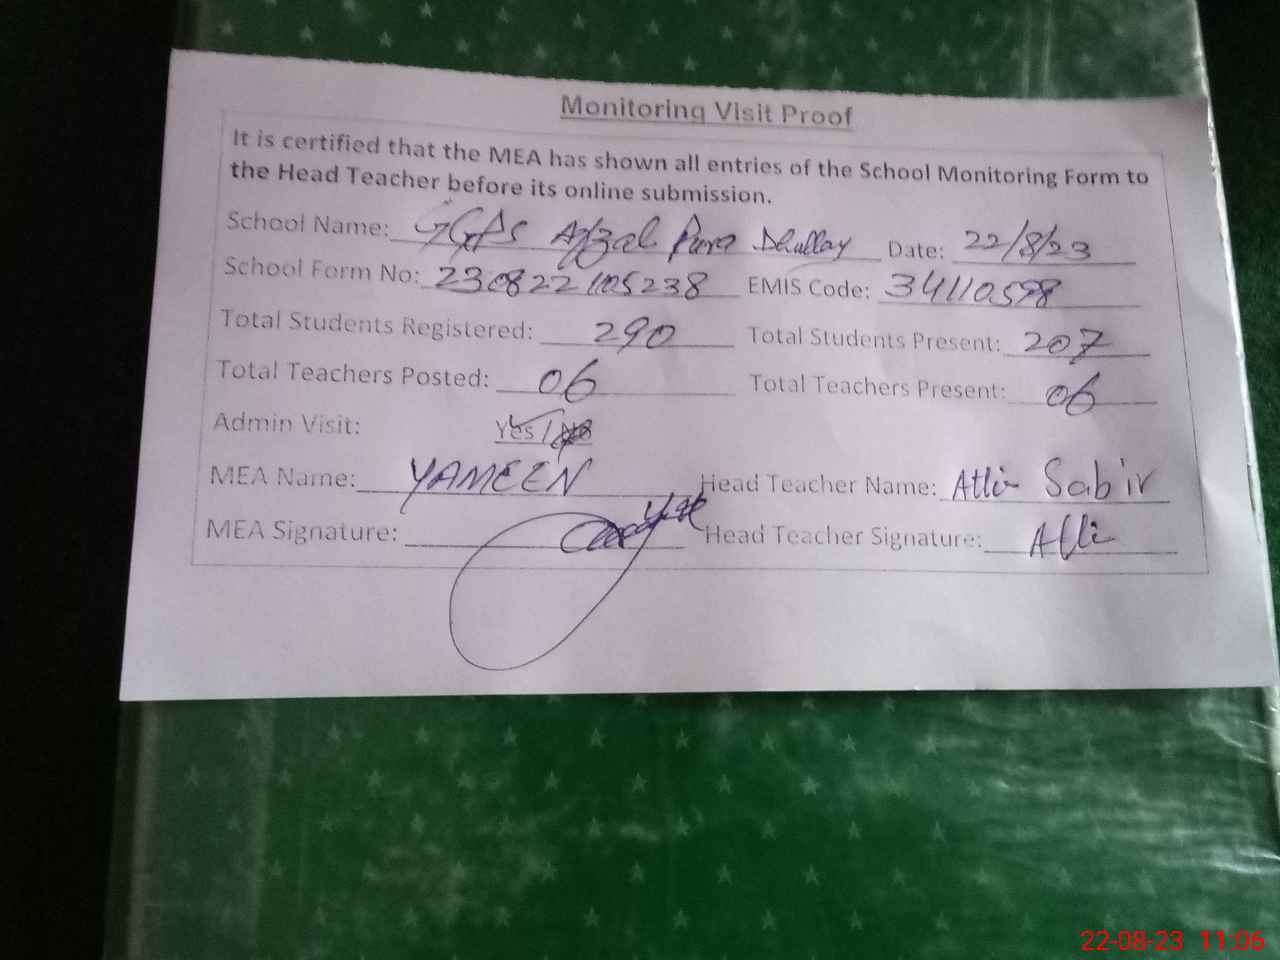 Monitoring Visit Proof
It is certified that the MEA has shown all entries of the School Monitoring Form to
the Head Teacher before its online submission.
School Name: GGPS Afzal Pura Dhullay Date: 22/8/23
School Form No: 230822105238 EMIS Code: 34110598
Total Students Registered: 290 Total Students Present: 207
Total Teachers Posted: 06 Total Teachers Present: 06
Admin Visit: Yes / No
MEA Name: YAMEEN Head Teacher Name: Sabir
MEA Signature: Head Teacher Signature:
22-08-23 11:06